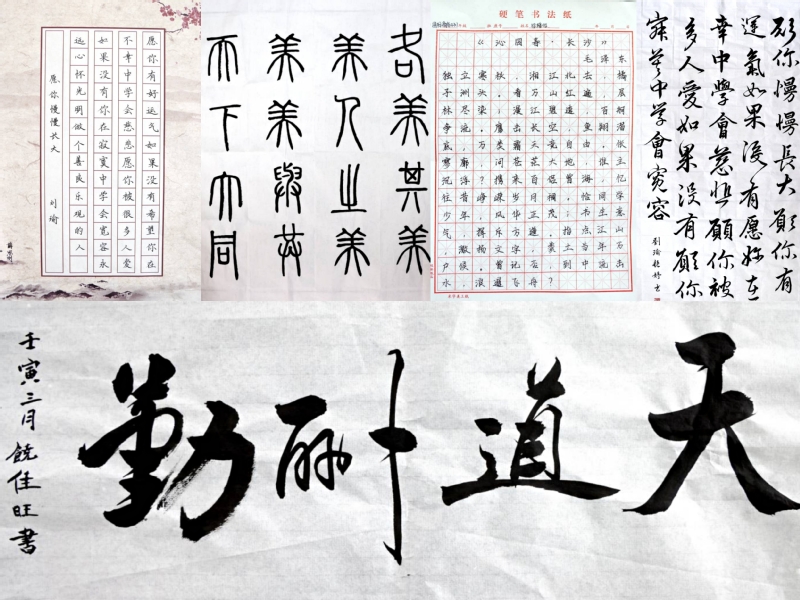 愿你有好运气如果没有希望你在
不幸中学会慈悲愿你被很多人爱
如果没有你在寂寞中学会宽容永
远心怀光明做个善良乐观的人
愿你慢慢长大
刘瑜
各美其美
美人之美
美美與共
天下大同
硬笔书法纸
《沁园春·长沙》
毛泽东
独立寒秋，湘江北去，橘
子洲头。看万山红遍，层
林尽染；漫江碧透，百舸
争流。鹰击长空，鱼翔浅
底，万类霜天竞自由。怅
寥廓，问苍茫大地，谁主
沉浮？携来百侣曾游。忆
往昔峥嵘岁月稠。恰同学
少年，风华正茂；书生意
气，挥斥方遒。指点江山，
激扬文字，粪土当年万
户侯。曾记否，到中流击
水，浪遏飞舟？
願你慢慢長大願你有
運氣如果没有愿你在
幸中學會慈悲願你被
多人愛如果没有願你
寂寞中學會寬容
天道酬勤
壬寅三月饶佳旺書